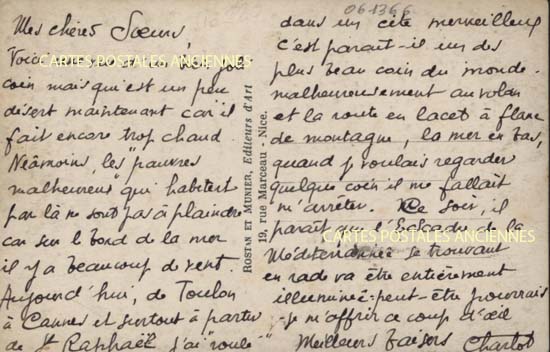 Mes chères Sœurs,
Voici
CARTES POSTALES ANCIENNES
coin mais qu'est un peu
désert maintenant car il
fait encore trop chaud
Néâmoins, les "pauvres
malheureux" qui habitent
par là ne sont pas à plaindre
car sur le bord de la mer
il y a beaucoup de vent.
Aujourd'hui, de Toulon
à Cannes et surtout à partir
de St Raphaël j'ai "roulé"
ROSTAN ET MUNIER, Editeurs d'Art
19, rue Marceau - Nice.
061366
dans un cite merveilleux
c'est parait-il un des
plus beau coin du monde.
malheureusement au volan
et la route en lacet à flanc
de montagne, la mer en bas,
quand j voulais regarder
quelque coin il me fallait
m'arreter. Ce soir, il
parait que l'Eskadre de la
CARTES POSTALES ANCIENNES
Méditerrannée se trouvant
en rade va être entièrement
illuminée. peut-être pourrais
-je m'offrir ce coup d'œil
Meilleurs baisers Charlot